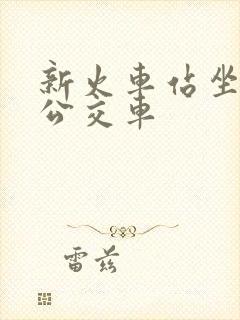 新火車佔坐
公交車
雷茲